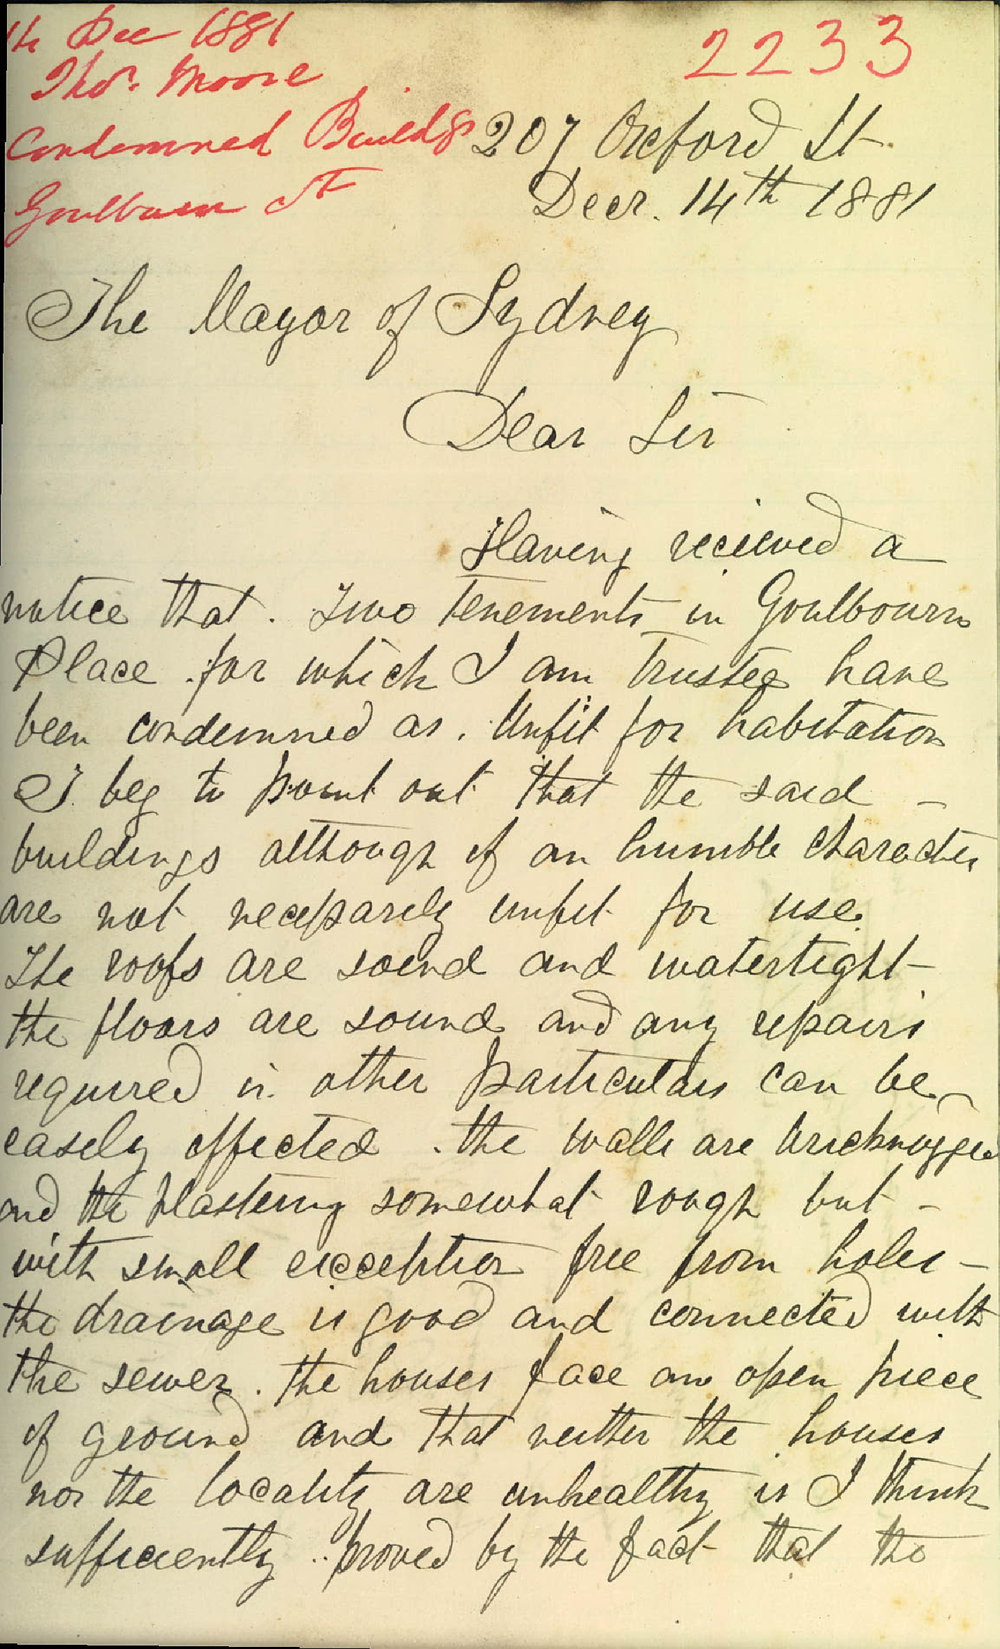 14 Dec 1881
Thos. Moore
Condemned Buildgs
Goulburn St
2233
207 Oxford St.
Decr. 14th 1881
The Mayor of Sydney
Dear Sir
Having recieved a
notice that. Two tenements in Goulbourn
Place for which I am Trustee have
been condemned as. Unfit for habitation
I beg to point out that the said –
buildings although of an humble character
are not necessarily unfit for use.
The roofs are sound and watertight –
the floors are sound and any repairs
required in other particulars can be
easily effected. the walls are bricknogged
and the plastering somewhat rough but –
with small exception free from holes –
the drainage is good and connected with
the sewer. the houses face an open piece
of ground and that neither the houses
nor the locality are unhealthy is I think
sufficiently proved by the fact that the